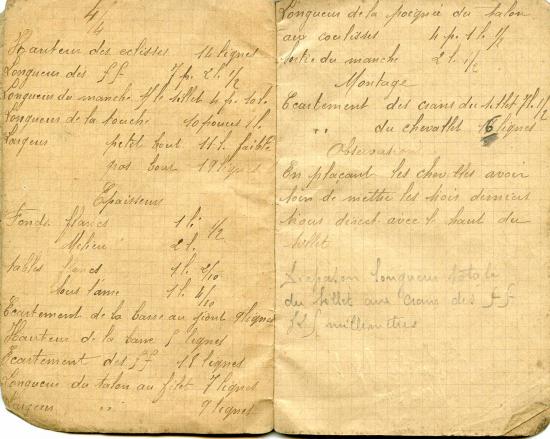 4/4
Hauteur des eclisses 14 lignes
Longueur des ff 7 p. 2 l. 1/2
Longueur du manche sillet 4 p. 10 l.
Longueur de la touche 10 pouces
Largeur petit bout 11 l. faible
gros bout 19 lignes
Epaisseurs
Fonds flancs 1 l. 1/2
Milieu 2 l.
tables flancs 1 l. 2/10
sous l'ame 1 l. 4/10
Ecartement de la barre au joint 9 lignes
Hauteur de la barre 5 lignes
Ecartement des ff 18 lignes
Longueur du talon au filet 7 lignes
Largeur " 9 lignes
Longueur de la poignée du talon
aux coulisses 4 p. 1 l. 1/2
Sortie du manche 2 l. 1/2
Montage
Ecartement des crans du sillet 7 l. 1/2
" du chevallet 16 lignes
Observation
En placant les chevilles avoir
soin de mettre les trois derniers
trous direct avec le haut du
sillet
Liegeson longueur totale
du sillet aux crans des ff
millimetres